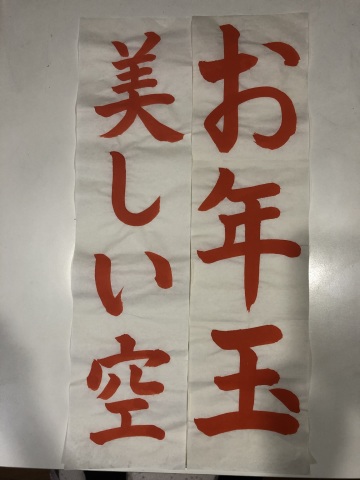 お年玉
美しい空